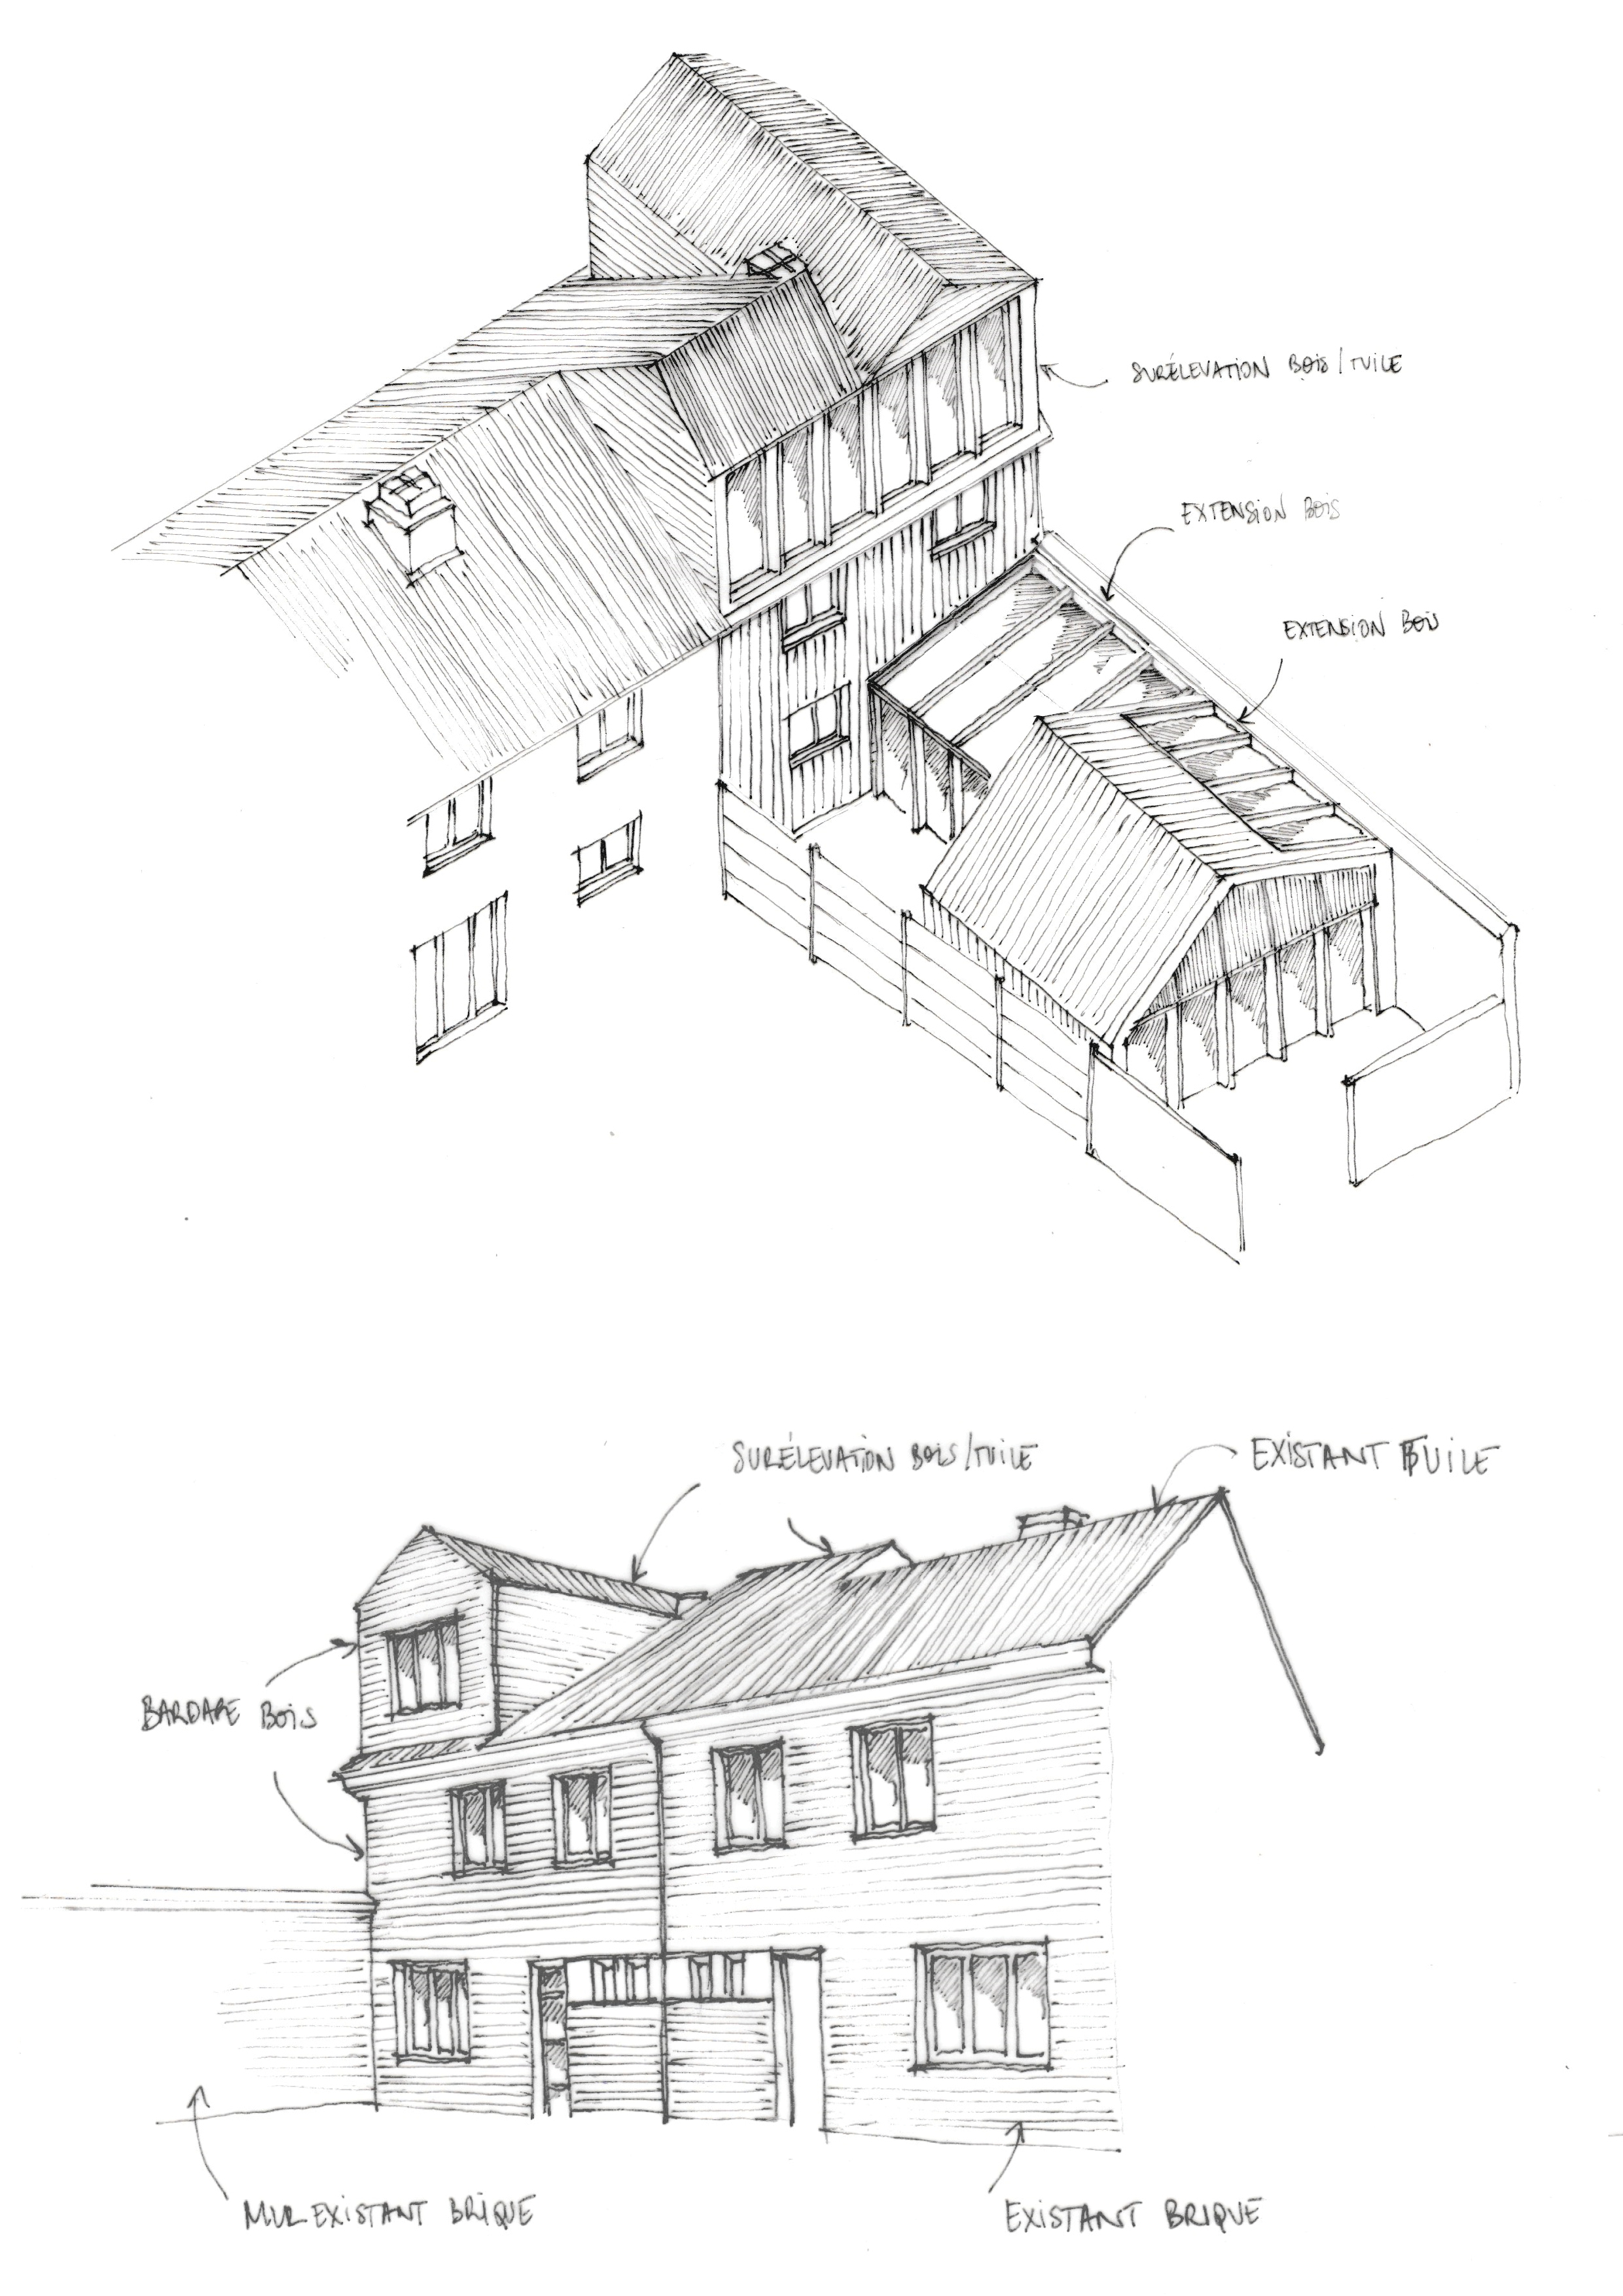 SURÉLEVATION BOIS/TUILE
EXTENSION BOIS
EXTENSION BOIS
SURÉLEVATION BOIS/TUILE
EXISTANT TUILE
BARDAGE BOIS
MUR EXISTANT BRIQUE
EXISTANT BRIQUE